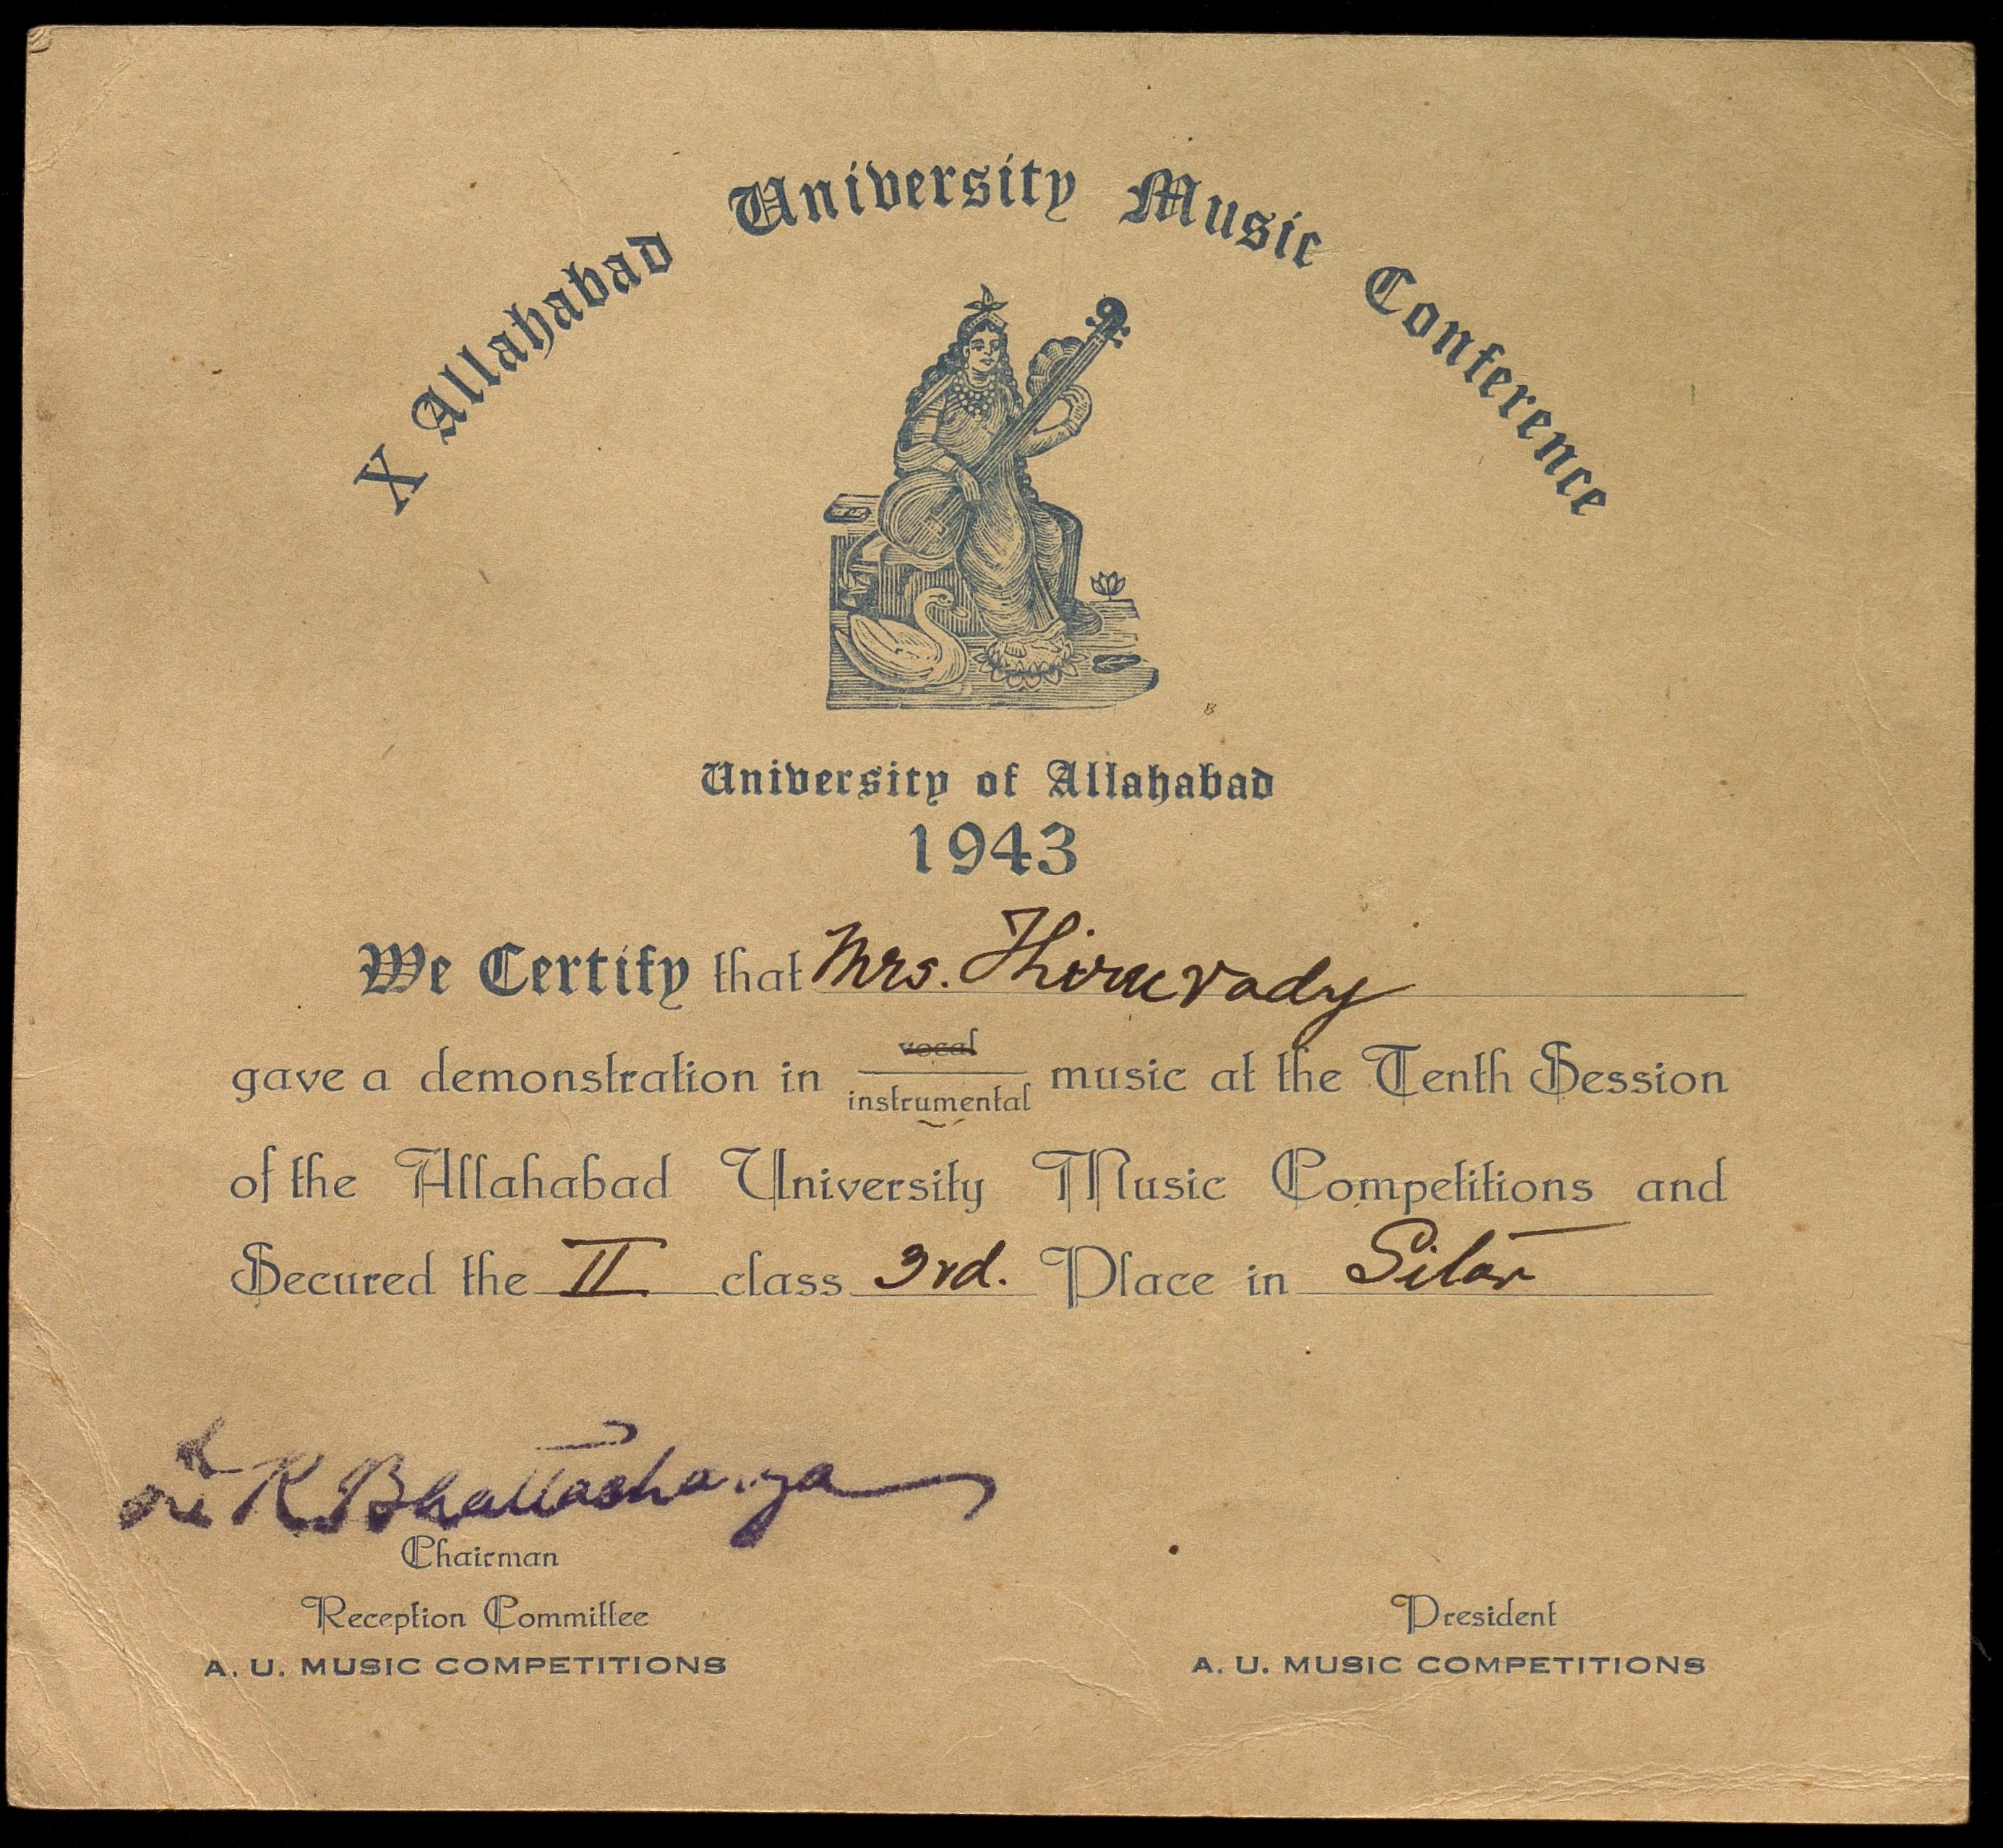 X Allahabad University Music Conference
University of Allahabad
1943
We Certify that Mrs. Thiruvady
gave a demonstration in vocal
instrumental music at the Tenth Session
of the Allahabad University Music Competitions and
Secured the II class 3rd. Place in Sitar
K Bhattacharya
Chairman
Reception Committee
A. U. MUSIC COMPETITIONS
President
A. U. MUSIC COMPETITIONS